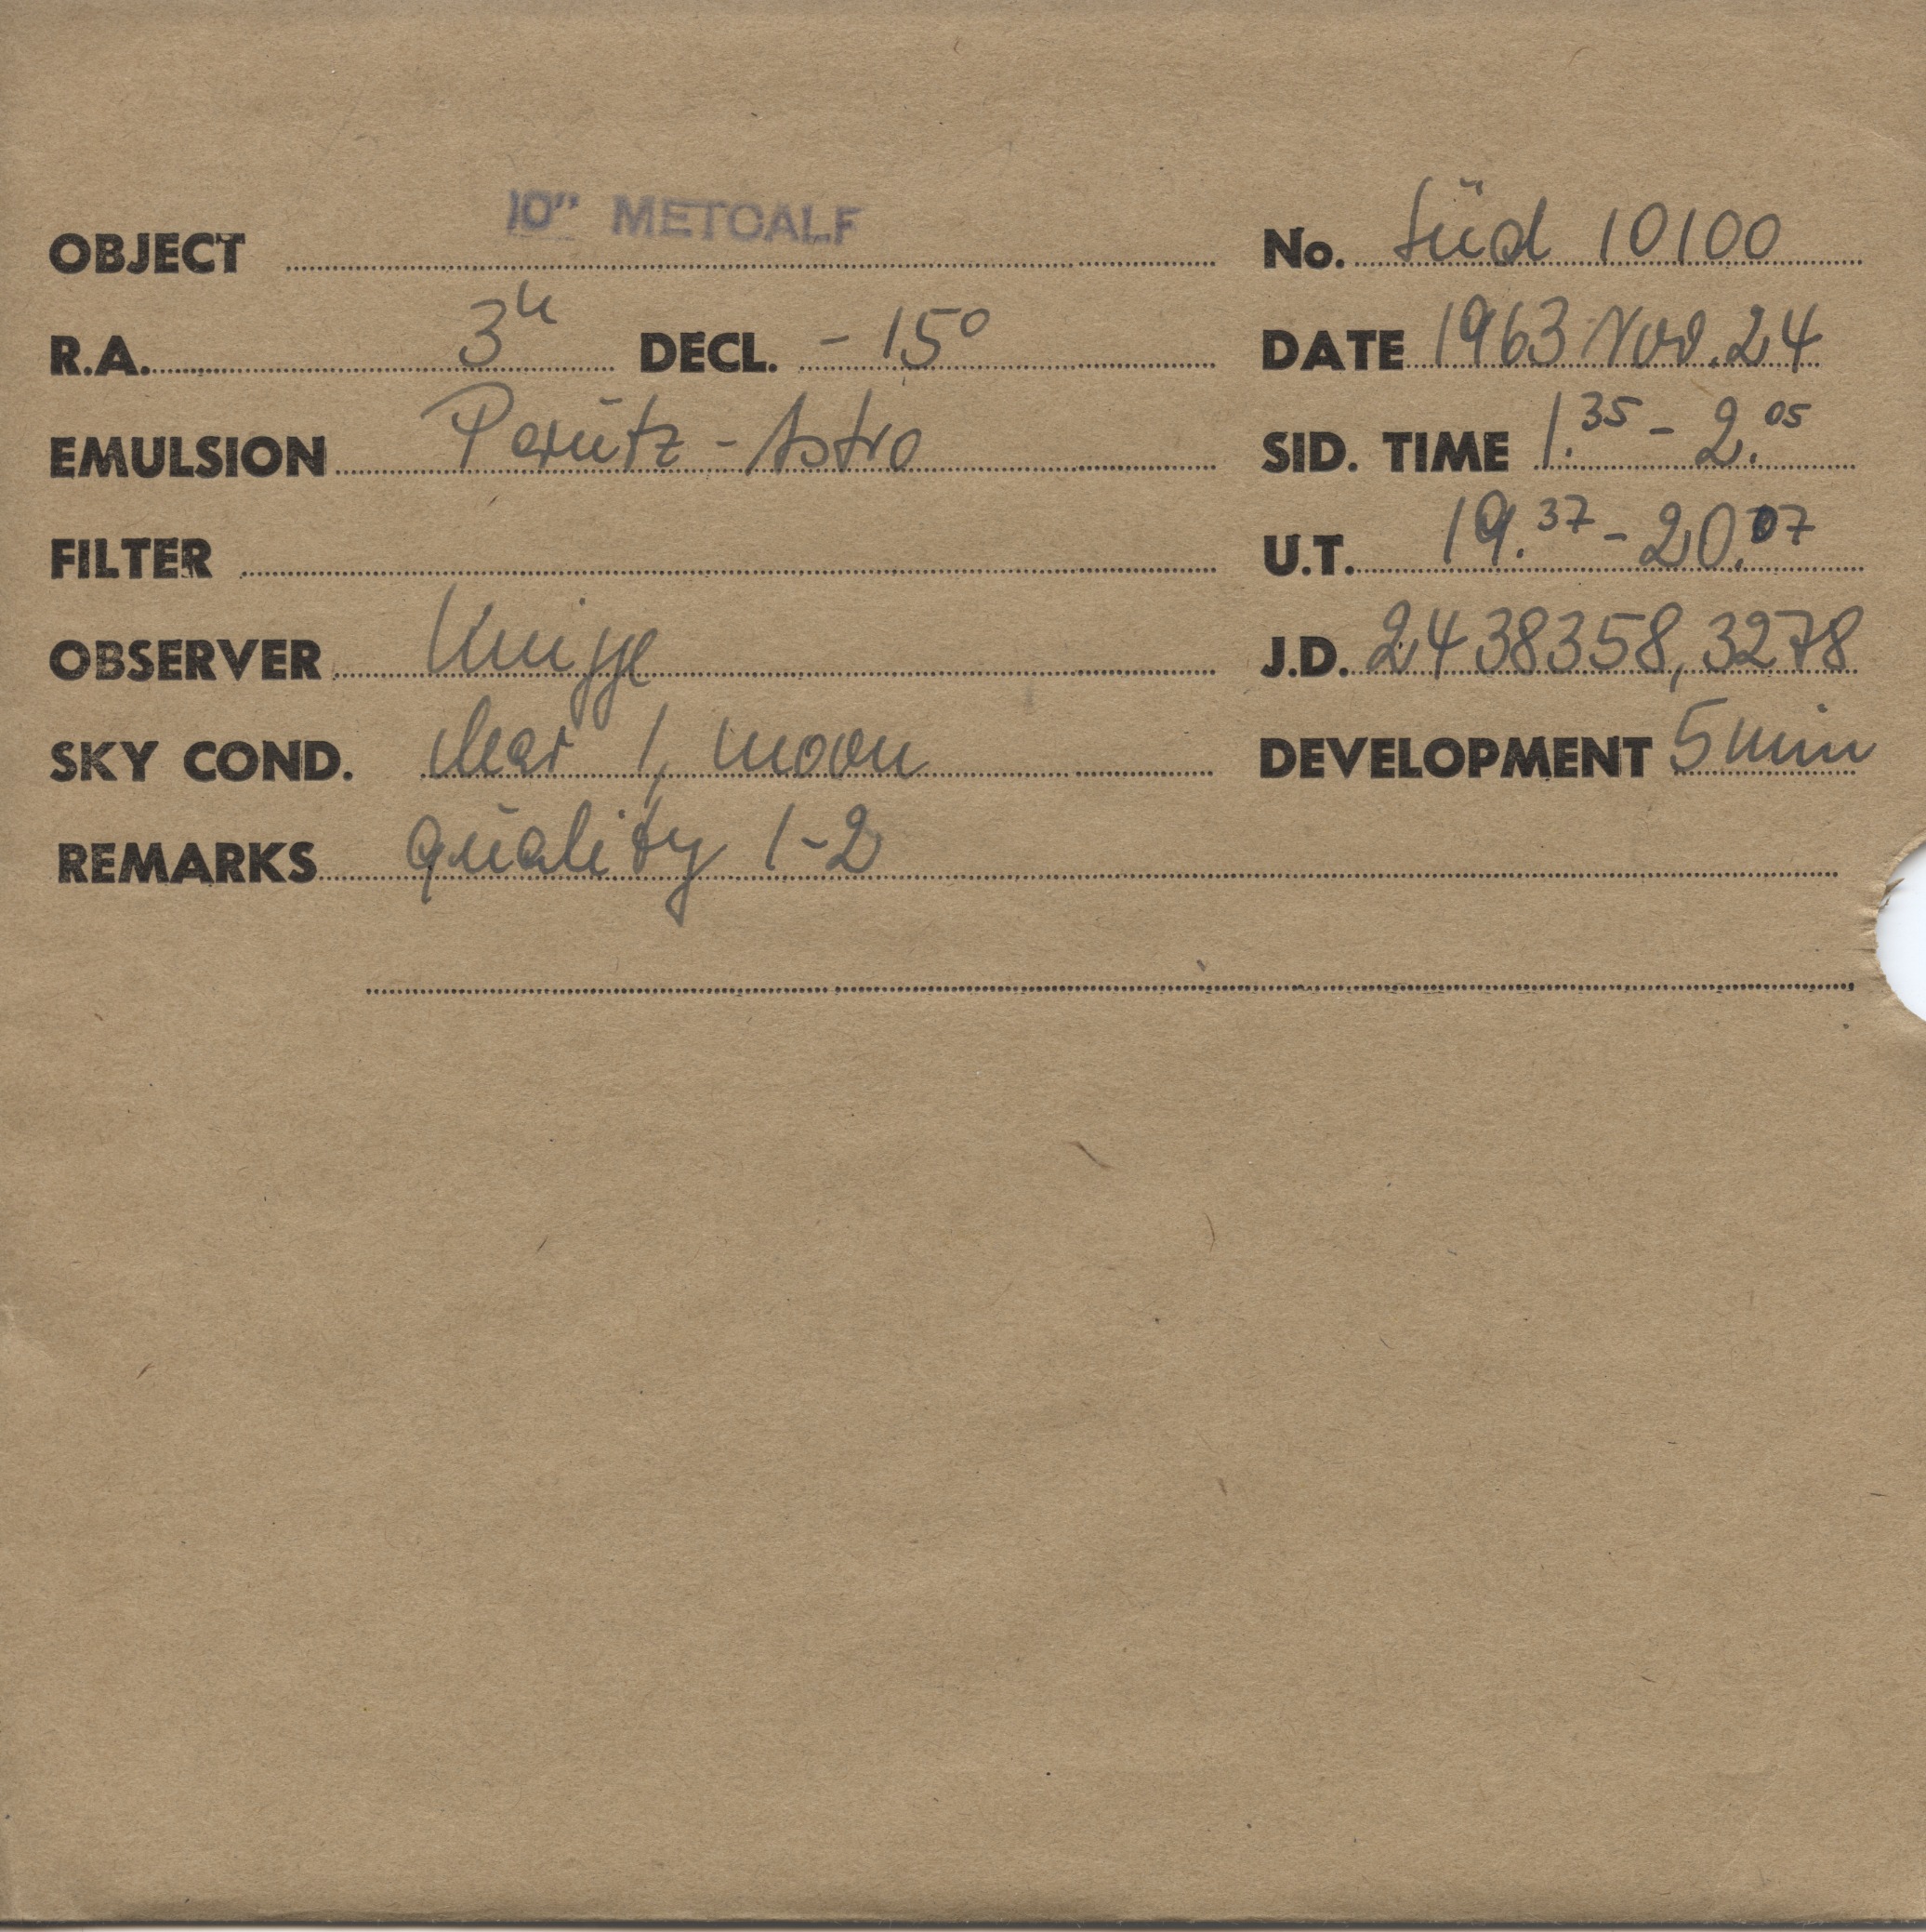 10" METCALF
OBJECT No. Süd 10100
R.A. 3h DECL. -15° DATE 1963 Nov. 24
EMULSION Perutz-Astro SID. TIME 1.35 - 2.05
FILTER U.T. 19.37 - 20.07
OBSERVER Knigge J.D. 2438358,3278
SKY COND. clear 1, moon DEVELOPMENT 5 min
REMARKS quality 1-2